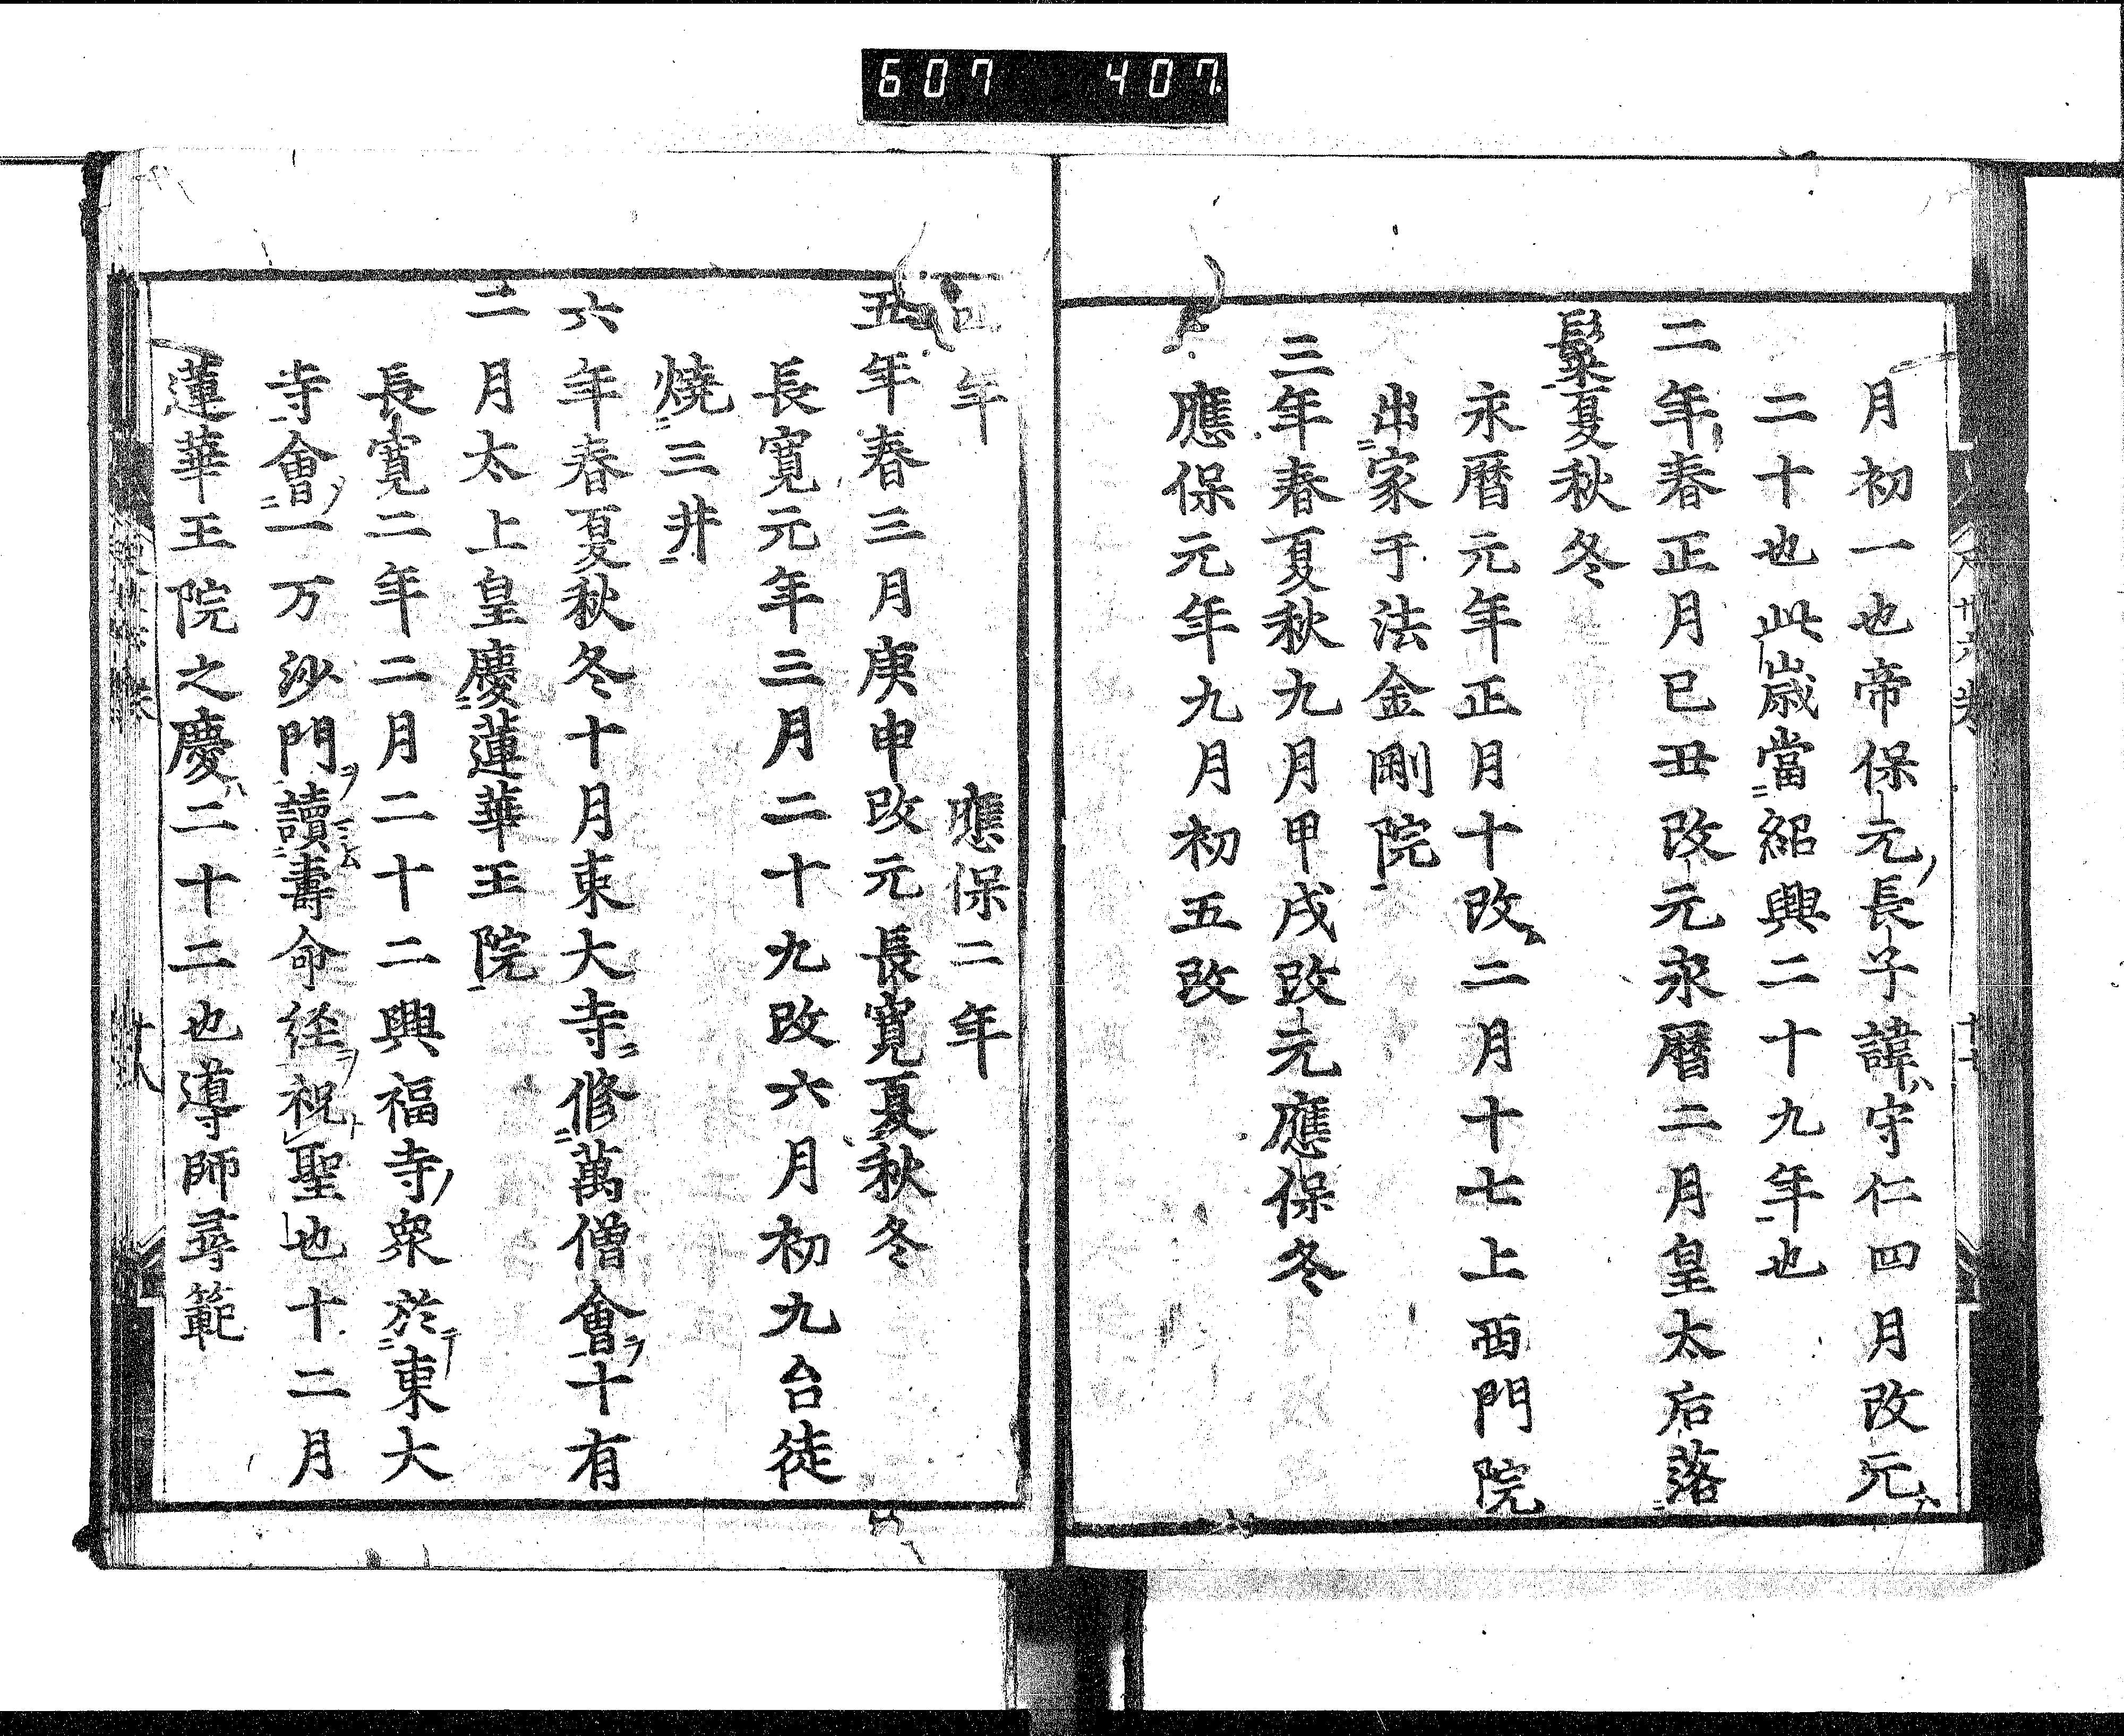 607 407
月初一也帝保元長子諱守仁四月改元
二十也此歳當紹興二十九年也
二年春正月已丑改元永暦二月皇太后落
髮夏秋冬
永暦元年正月十改二月十七上西門院
出家于法金剛院
三年春夏秋九月甲戌改元應保冬
應保元年九月初五改
四年 應保二年
五年春三月庚申改元長寛夏秋冬
長寛元年三月二十九改六月初九台徒
燒三井
六年春夏秋冬十月東大寺修萬僧會十有
二月太上皇慶蓮華王院
長寛二年二月二十二興福寺衆於東大
寺會一万沙門讀壽命経祝聖也十二月
蓮華王院之慶二十二也導師尋範